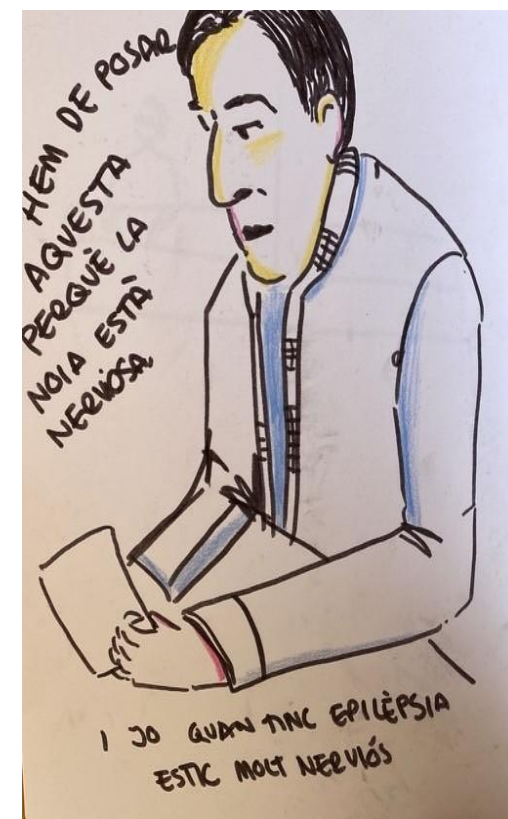 HEM DE POSAR
AQUESTA
PERQUÈ LA
NOIA ESTÀ
NERVIOSA
I JO QUAN TINC EPILÈPSIA
ESTIC MOLT NERVIÓS